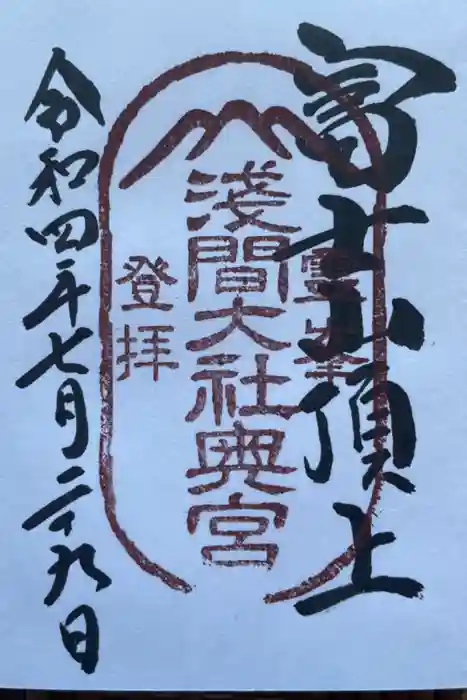 富士頂上
霊峯
淺間大社奥宮
登拝
令和四年七月二十九日